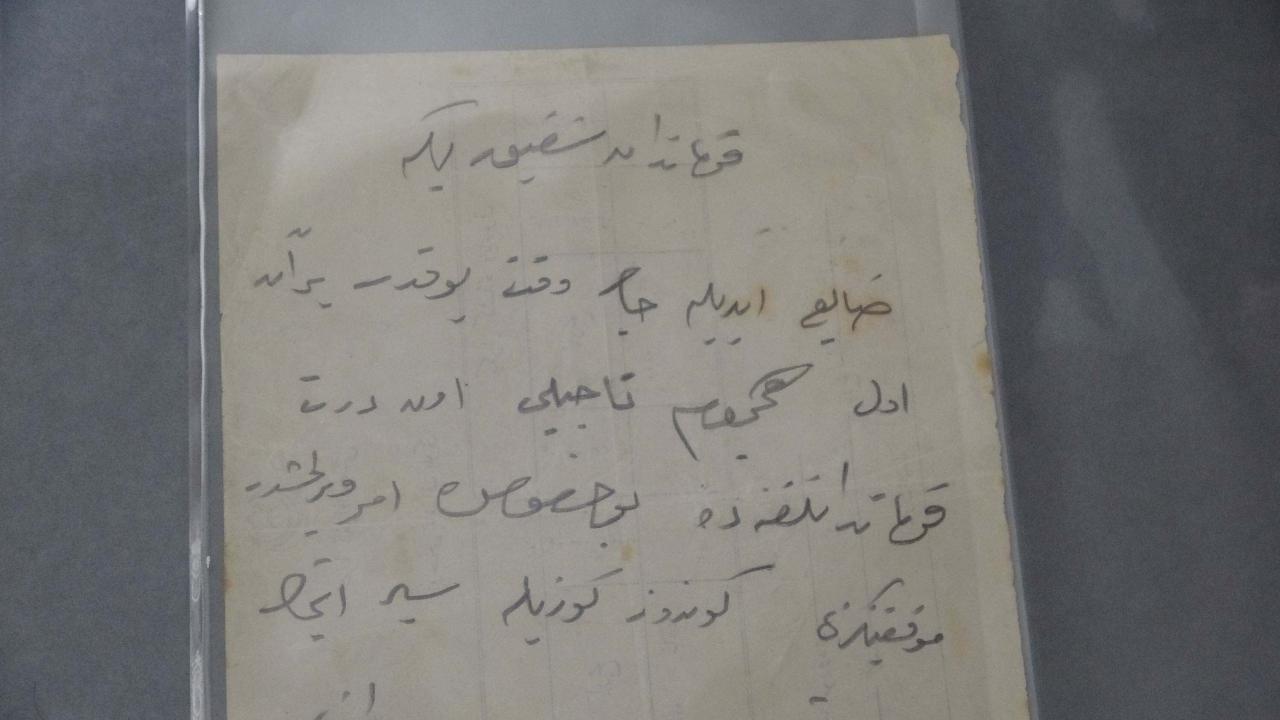 قوماندان شفیق بكه
ضایع ایدیله جك وقت یوقدر بر آن
اول هجوم تاجیلی اون درت
قوماندانلغنه ده بو خصوصده امر ویرلمشدر
موفقیتكزه كوندوز كوزیله سیر ایتمك